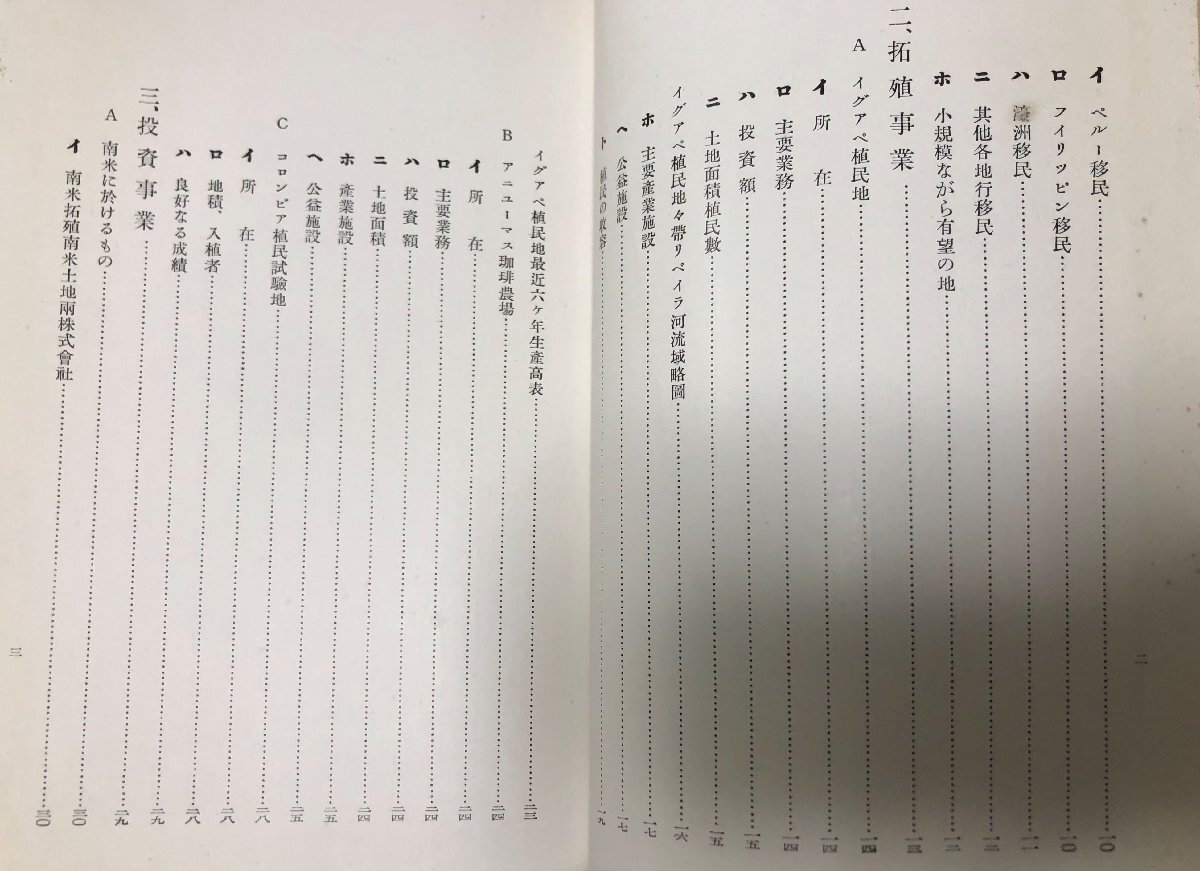 イ ペルー移民……一〇
ロ フイリツピン移民……一〇
ハ 濠洲移民……一一
ニ 其他各地行移民……一二
ホ 小規模ながら有望の地……一二
二、拓殖事業……一三
A イグアペ植民地……一四
イ 所在……一四
ロ 主要業務……一四
ハ 投資額……一五
ニ 土地面積植民數……一五
イグアペ植民地々帶リベイラ河流域略圖……一六
ホ 主要產業施設……一七
ヘ 公益施設……一七
ト 植民の……一九
二
イグアペ植民地最近六ヶ年生產高表……二三
B アニユーマス珈琲農場……二四
イ 所在……二四
ロ 主要業務……二四
ハ 投資額……二四
ニ 土地面積……二四
ホ 產業施設……二五
ヘ 公益施設……二五
C コロンビア植民試驗地……二八
イ 所在……二八
ロ 地積、入植者……二八
ハ 良好なる成績……二八
三、投資事業……二九
A 南米に於けるもの……二九
イ 南米拓殖南米土地兩株式會社……三〇
三